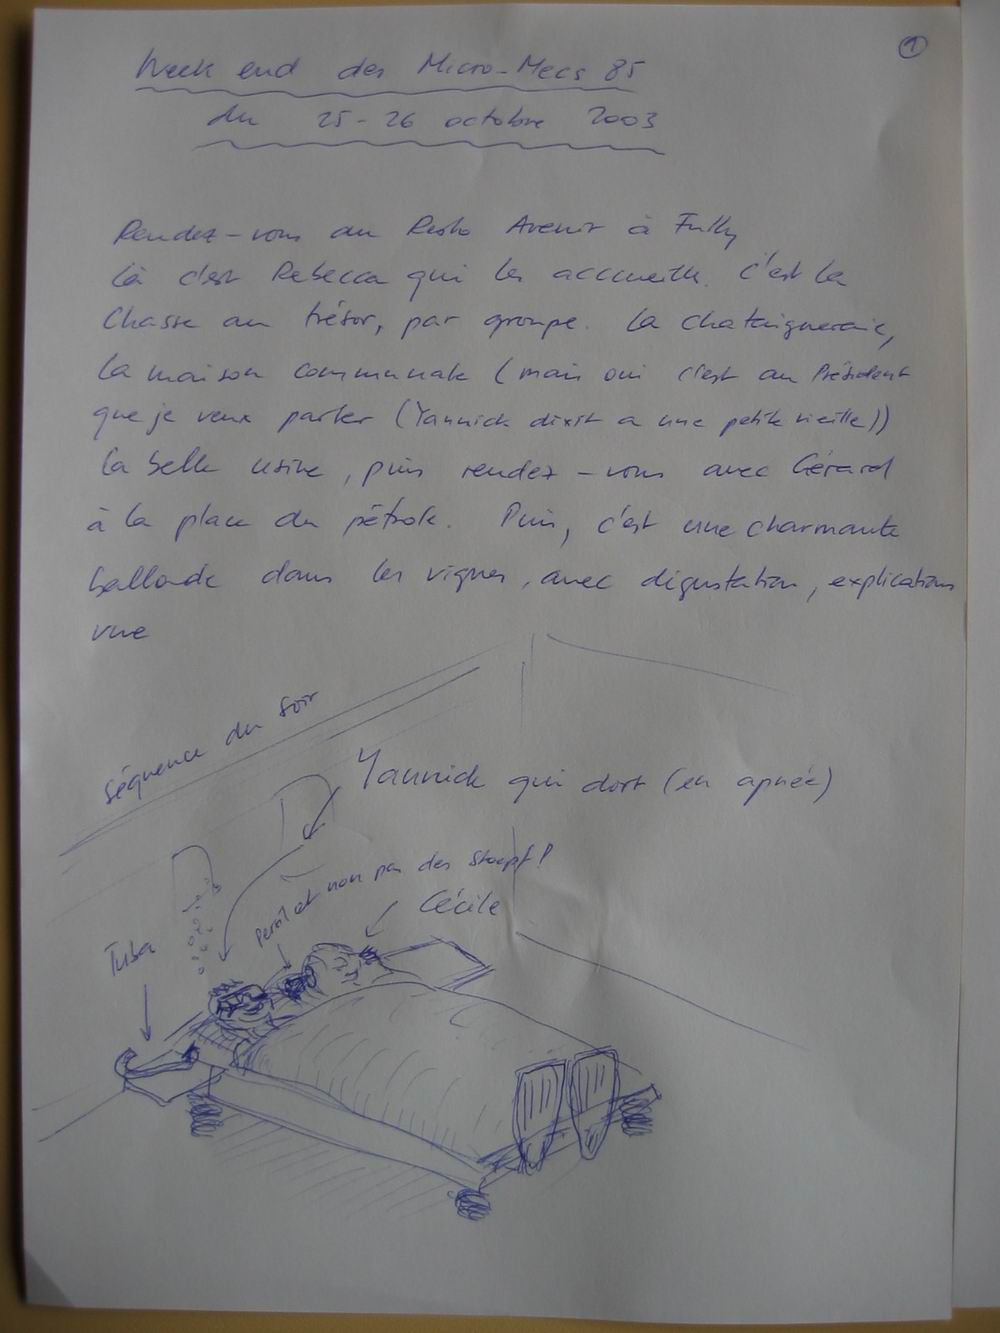 1
Week end des Micro-Mecs 85
du 25-26 octobre 2003
Rendez-vous au Resto Avenir à Fully
Là c'est Rebecca qui les acccueille. C'est la
Chasse au trésor, par groupe. La chataigneraie,
la maison communale (mais oui c'est au Président
que je veux parler (Yannick dixit a une petite vieille))
la belle usine, puis rendez-vous avec Gérard
à la place du pétrole. Puis, c'est une charmante
ballade dans les vignes, avec dégustation, explications
vue
séquence du soir
Yannick qui dort (en apnée)
et non pas des
Cécile
Tuba